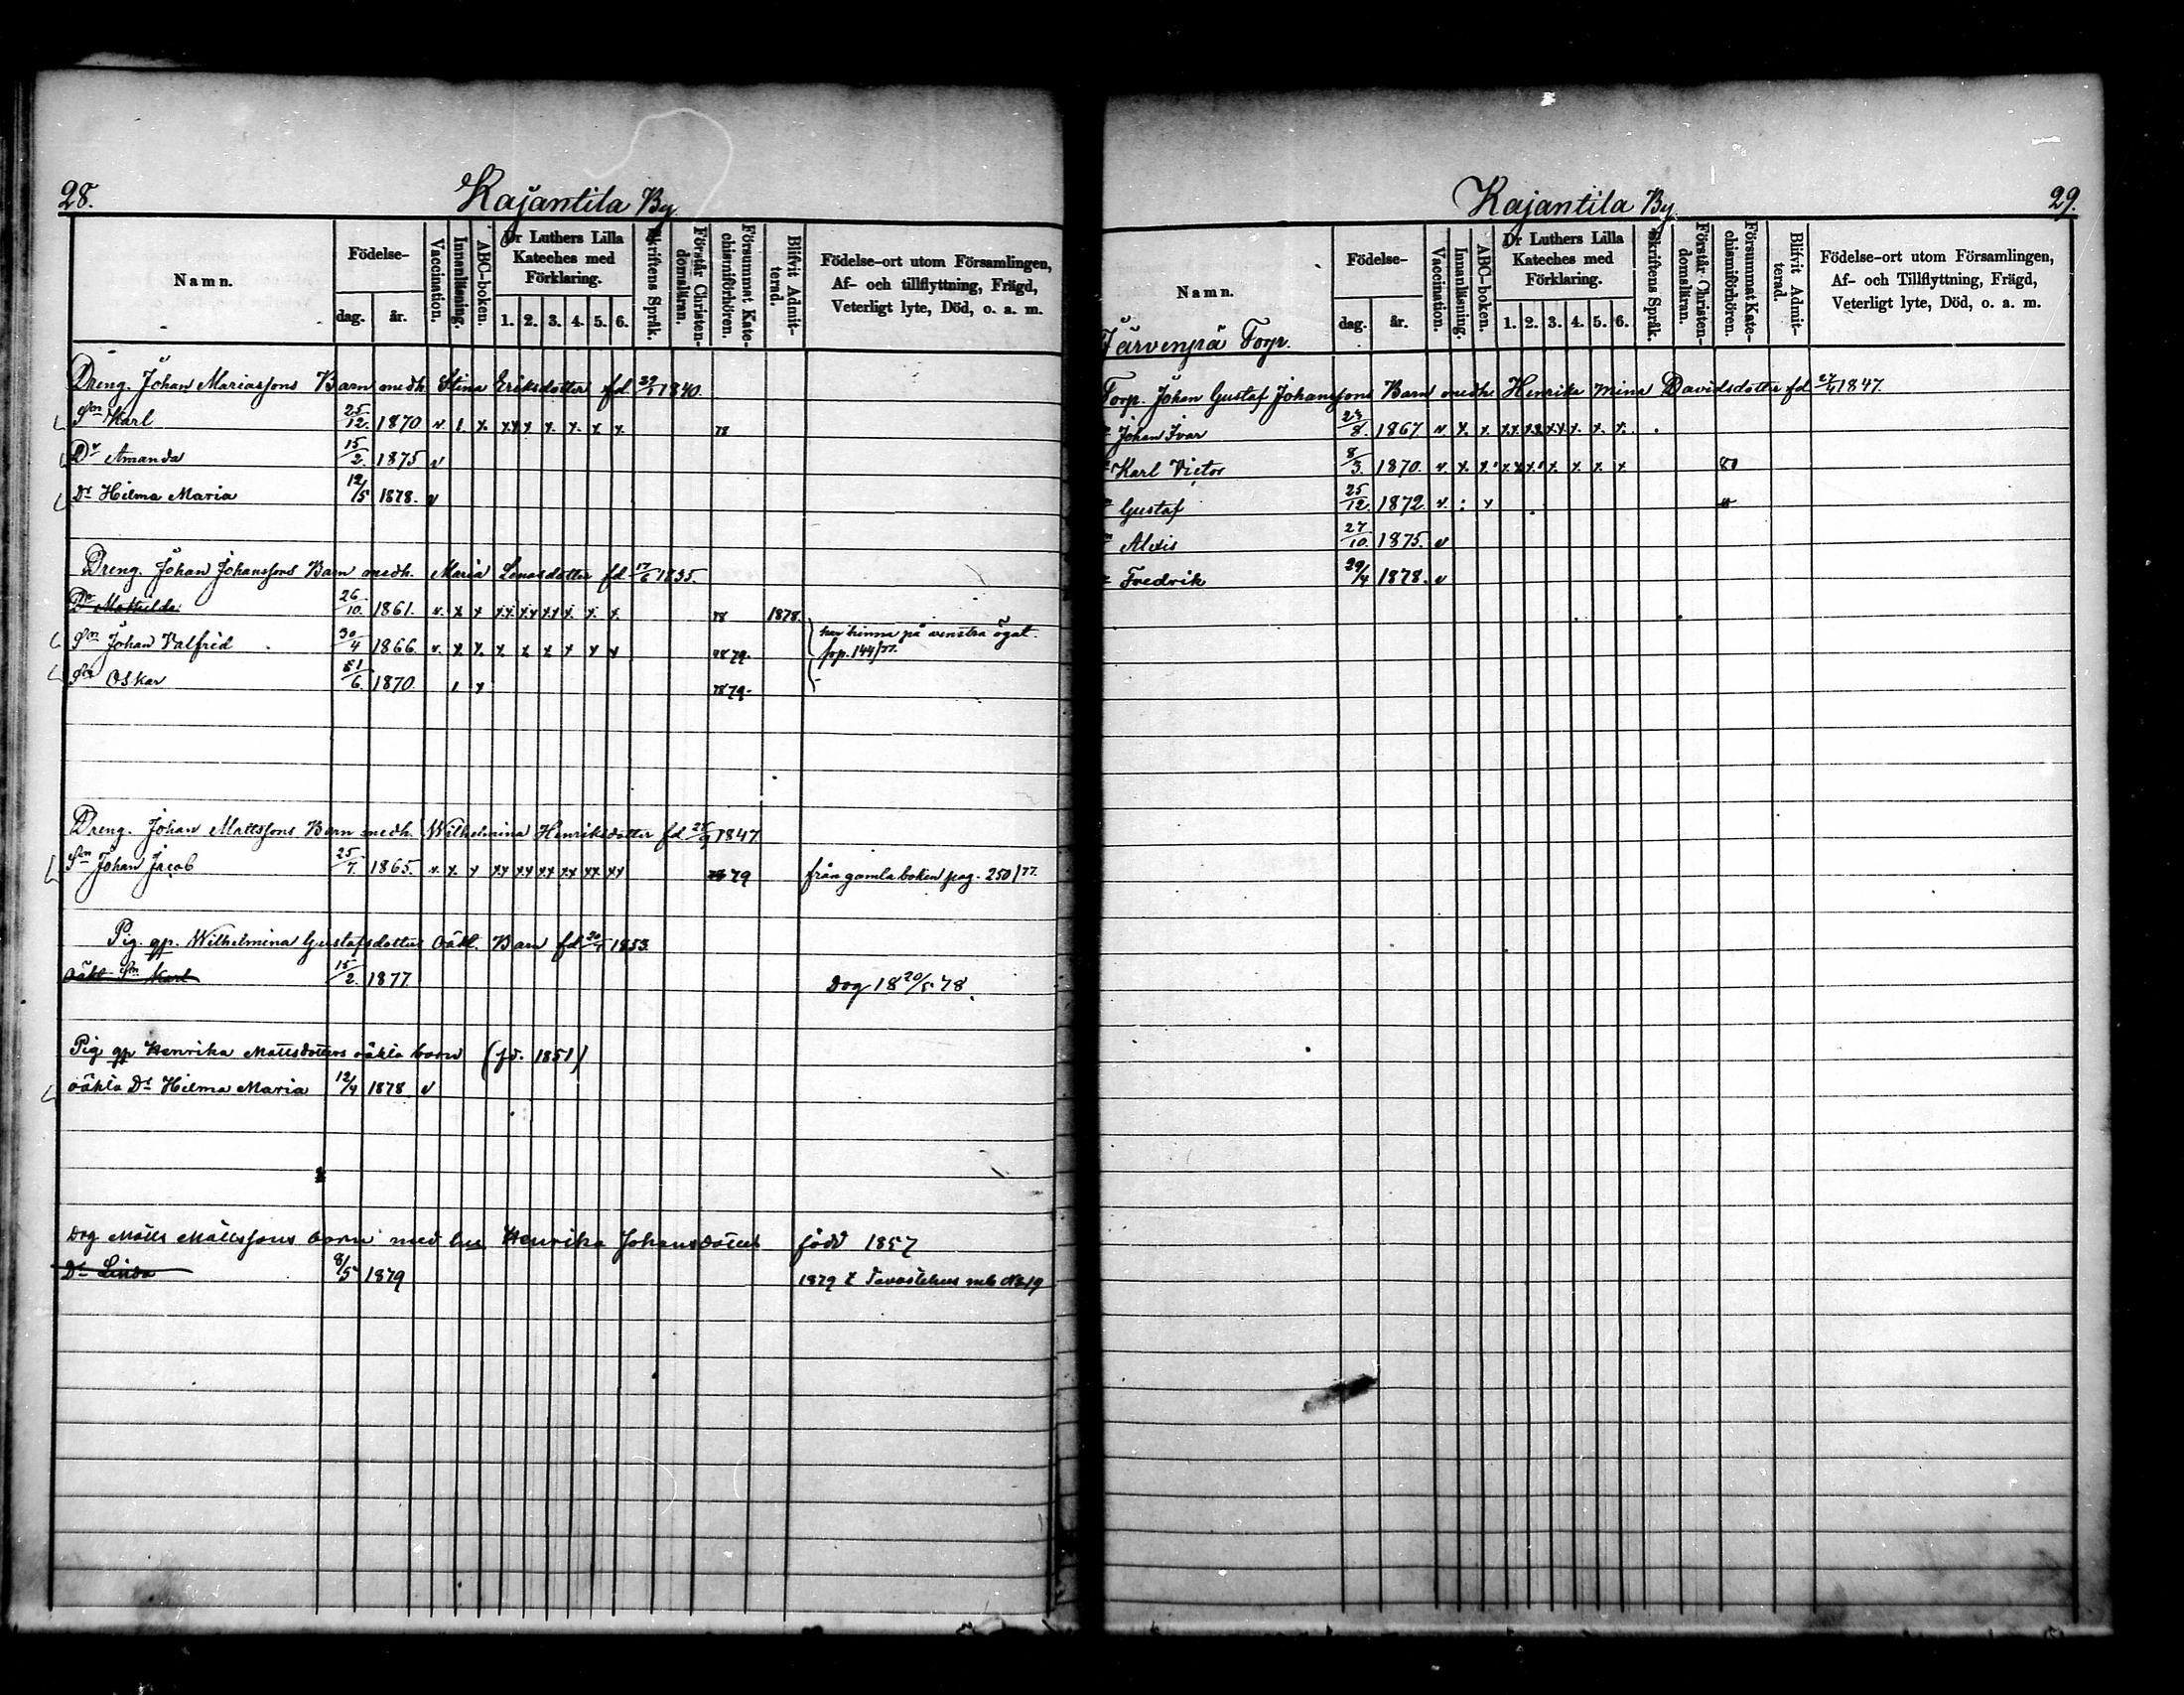 28.
Kajantila By
Namn.
Födelse-
dag.
år.
Vaccination.
Innanläsning.
ABC-boken.
Dr Luthers Lilla
Kateches med
Förklaring.
1. 2. 3. 4. 5. 6.
Skriftens Språk.
Förstår Christen-
domsläran.
Försummat Kate-
chismiförhören.
Blifvit Admit-
terad.
Födelse-ort utom Församlingen,
Af- och tillflyttning, Frägd,
Veterligt lyte, Död, o. a. m.
Dreng. Johan Mariassons Barn medh. Stina Eriksdotter fd 1840.
Sn Karl 25/12. 1870 v. 1. x. xx x x. x. x x. 78
Dr Amanda 15/2. 1875 v
Dr Hilma Maria 12/5 1878. v
Dreng. Johan Johanssons Barn medh. Maria Lenasdotter fd 17/6 1835.
Dr Mathilda 26/10. 1861. v. x x xx xx xx x. x. x. 78 1878.
Sn Johan Valfrid 30/4 1866. v. x x. x. x x x x x 78 79. har hinna på venstra ögat.
pop. 144/77.
Sn Oskar 1870. 1 x 78 79.
Dreng. Johan Mattssons Barn medh. Wilhelmina Henriksdotter fd 1847
Sn Johan Jacob 25/7. 1865. v. x. x xx xx xx xx xx xx 79 från gamla boken pag. 250/77.
Pig. gp. Wilhelmina Gustafsdotters oäkt. Barn fd 1853.
oäkt Sn Karl 15/2. 1877. Dog 18 20/5 78.
Pig gp Henrika Mattsdotters oäkta barn (fd. 1851)
oäkta Dr Hilma Maria 12/4 1878 v
Drg Matts Mattssons barn med hu Henrika Johansdotter född 1857
Dr Linda 8/5 1879 1879 t Tavastehus mb No 19
Kajantila By
29.
Namn.
Födelse-
dag.
år.
Vaccination.
Innanläsning.
ABC-boken.
Dr Luthers Lilla
Kateches med
Förklaring.
1. 2. 3. 4. 5. 6.
Skriftens Språk.
Förstår Christen-
domsläran.
Försummat Kate-
chismiförhören.
Blifvit Admit-
terad.
Födelse-ort utom Församlingen,
Af- och Tillflyttning, Frägd,
Veterligt lyte, Död, o. a. m.
Järvenpä Torp.
Torp. Johan Gustaf Johanssons Barn medh. Henrika Mina Davidsdotter fd 1847.
Johan Ivar 1867. v. x. x. xx xx xx x. x. x.
Karl Victor 8/3. 1870. v. x x xx x x. x x x 80
Gustaf 25/12. 1872. v. : x
Alexis 27/10. 1875. v
Fredrik 29/4 1878. v